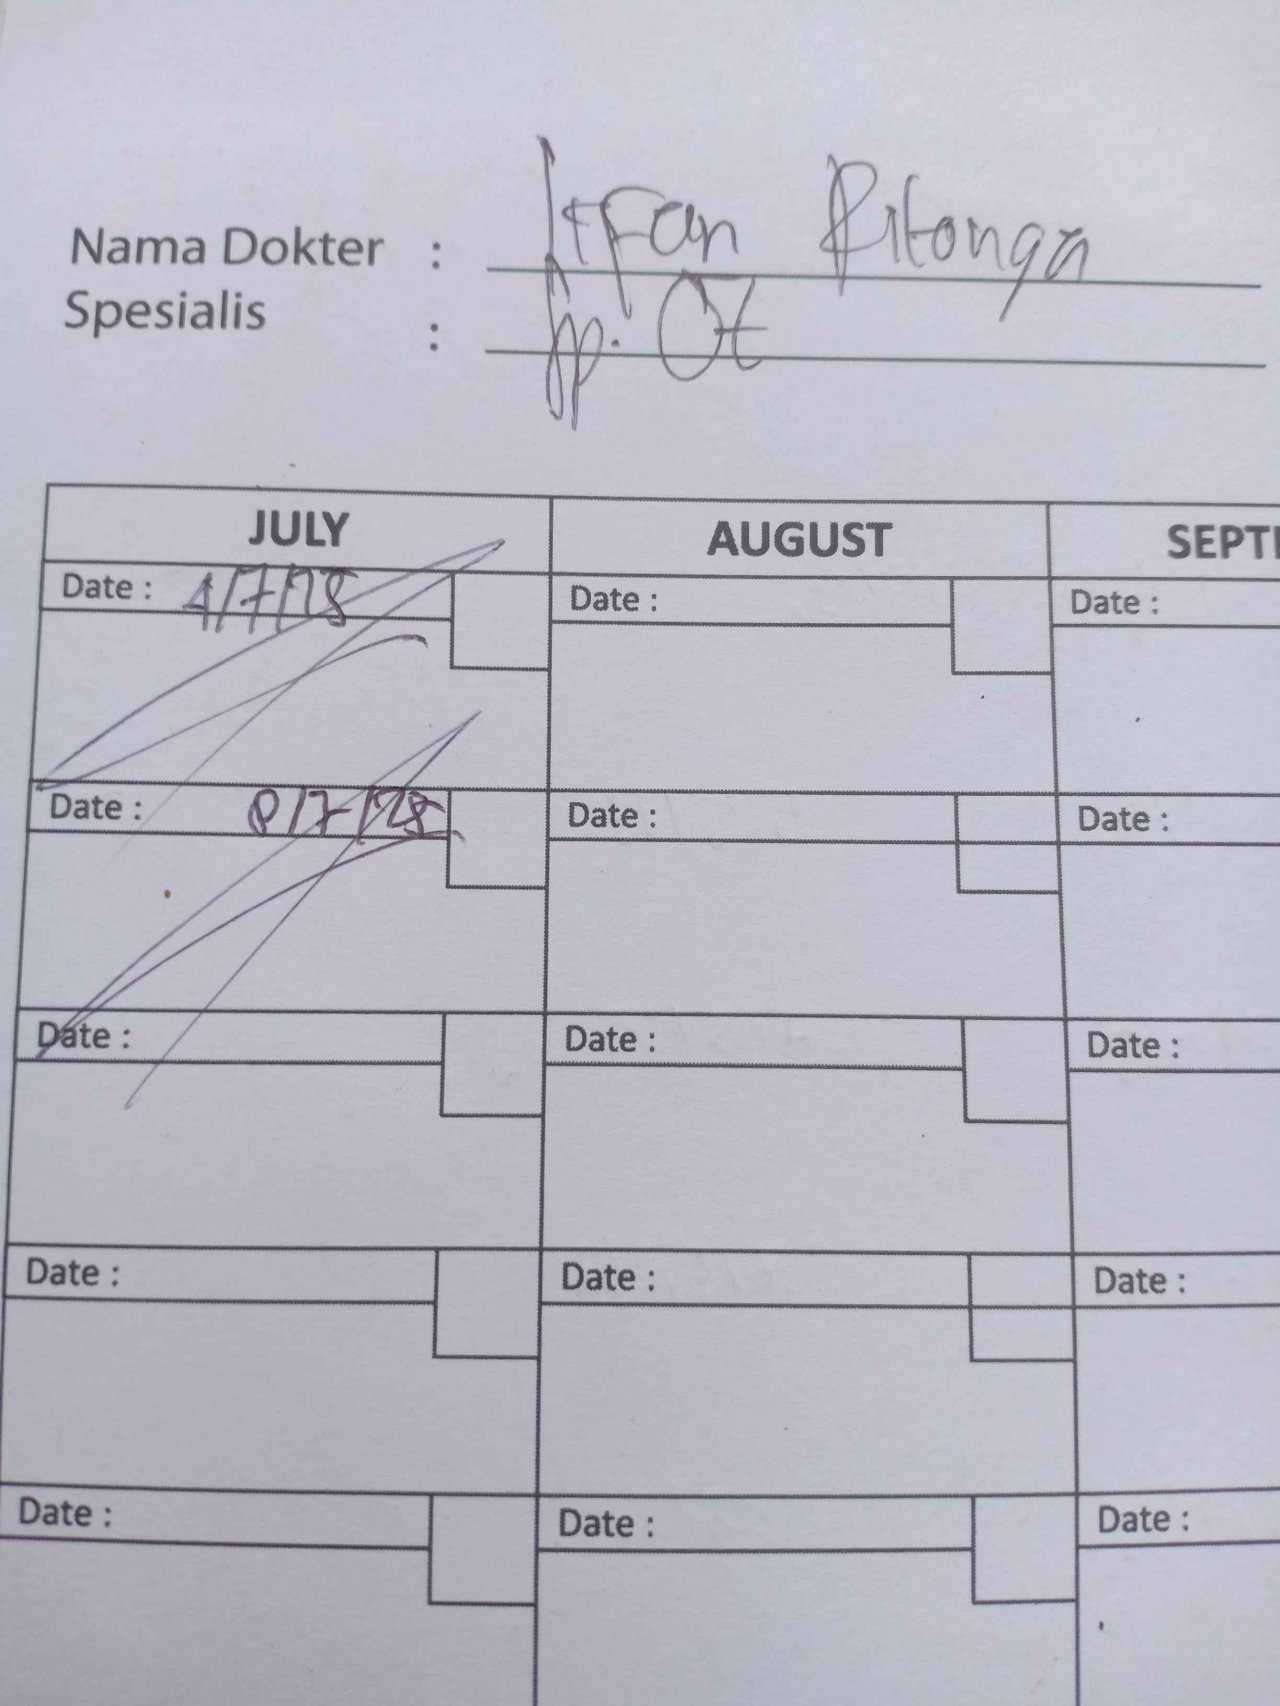 Nama Dokter : Irfan Ritonga
Spesialis : Sp. OT
JULY AUGUST
Date : 4/7/ Date : Date :
Date : 8/7/ Date : Date :
Date : Date : Date :
Date : Date : Date :
Date : Date : Date :